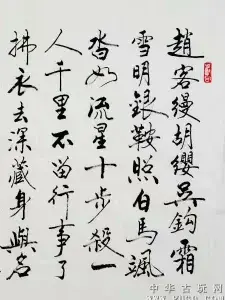 趙客縵胡纓吳鉤霜
雪明銀鞍照白馬颯
沓如流星十步殺一
人千里不留行事了
拂衣去深藏身與名
中华古玩网